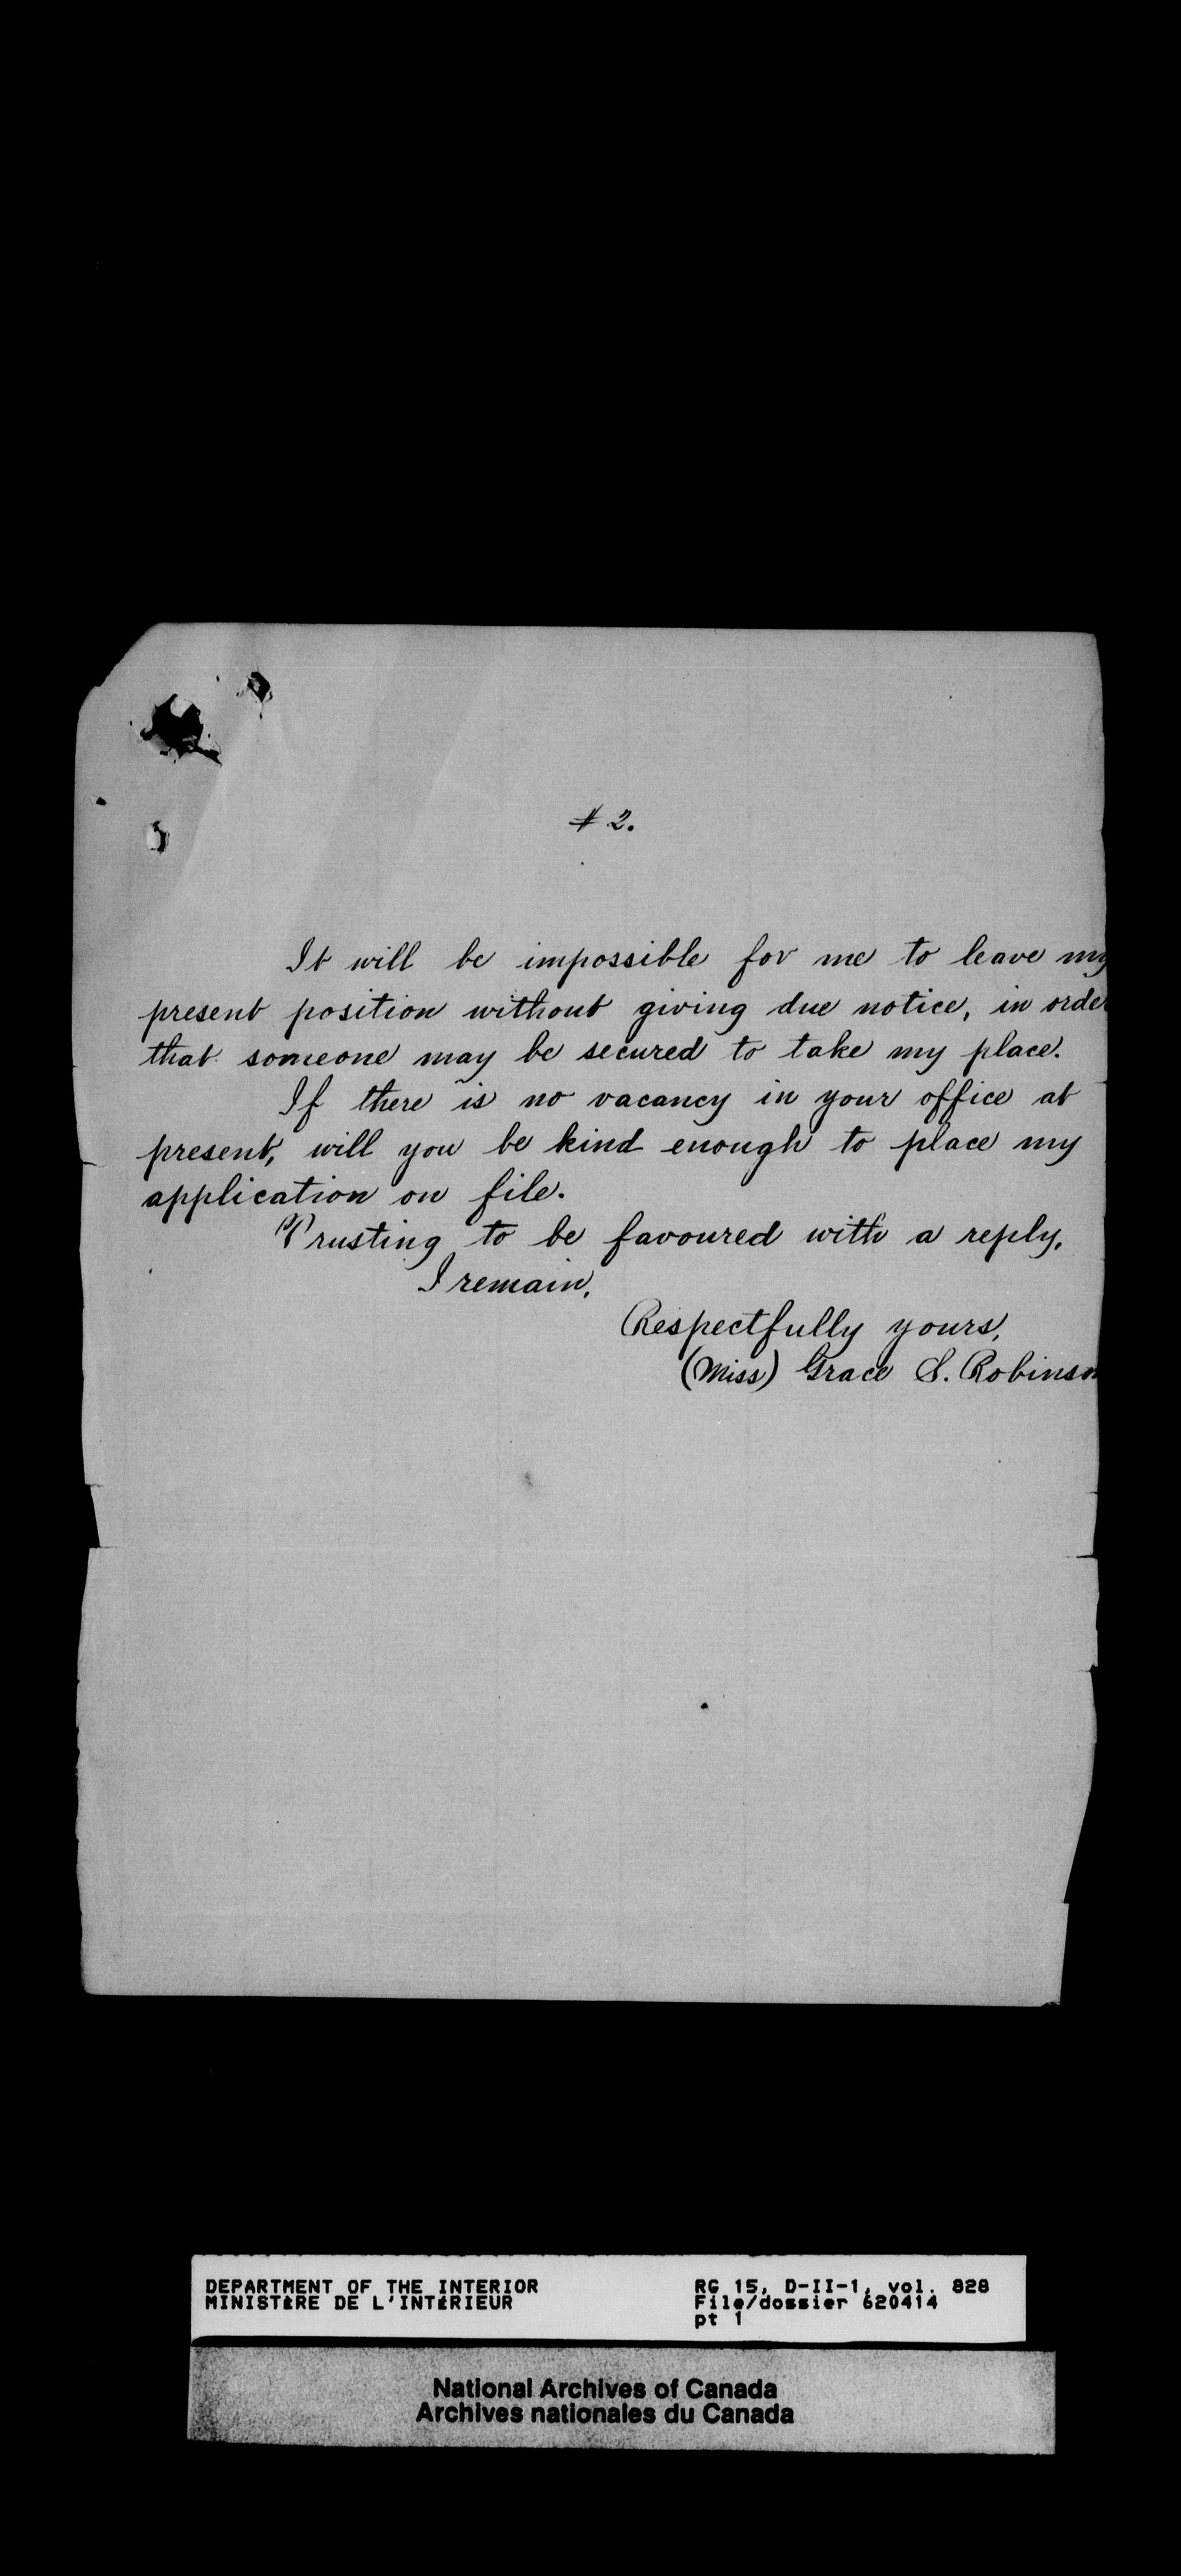 # 2.
It will be impossible for me to leave my
present position without giving due notice, in order
that someone may be secured to take my place.
If there is no vacancy in your office at
present, will you be kind enough to place my
application on file.
Trusting to be favoured with a reply,
I remain,
Respectfully yours,
(Miss) Grace S. Robinson
DEPARTMENT OF THE INTERIOR
MINISTÈRE DE L'INTÉRIEUR
RG 15, D-II-1, vol. 828
File/dossier 620414
pt 1
National Archives of Canada
Archives nationales du Canada